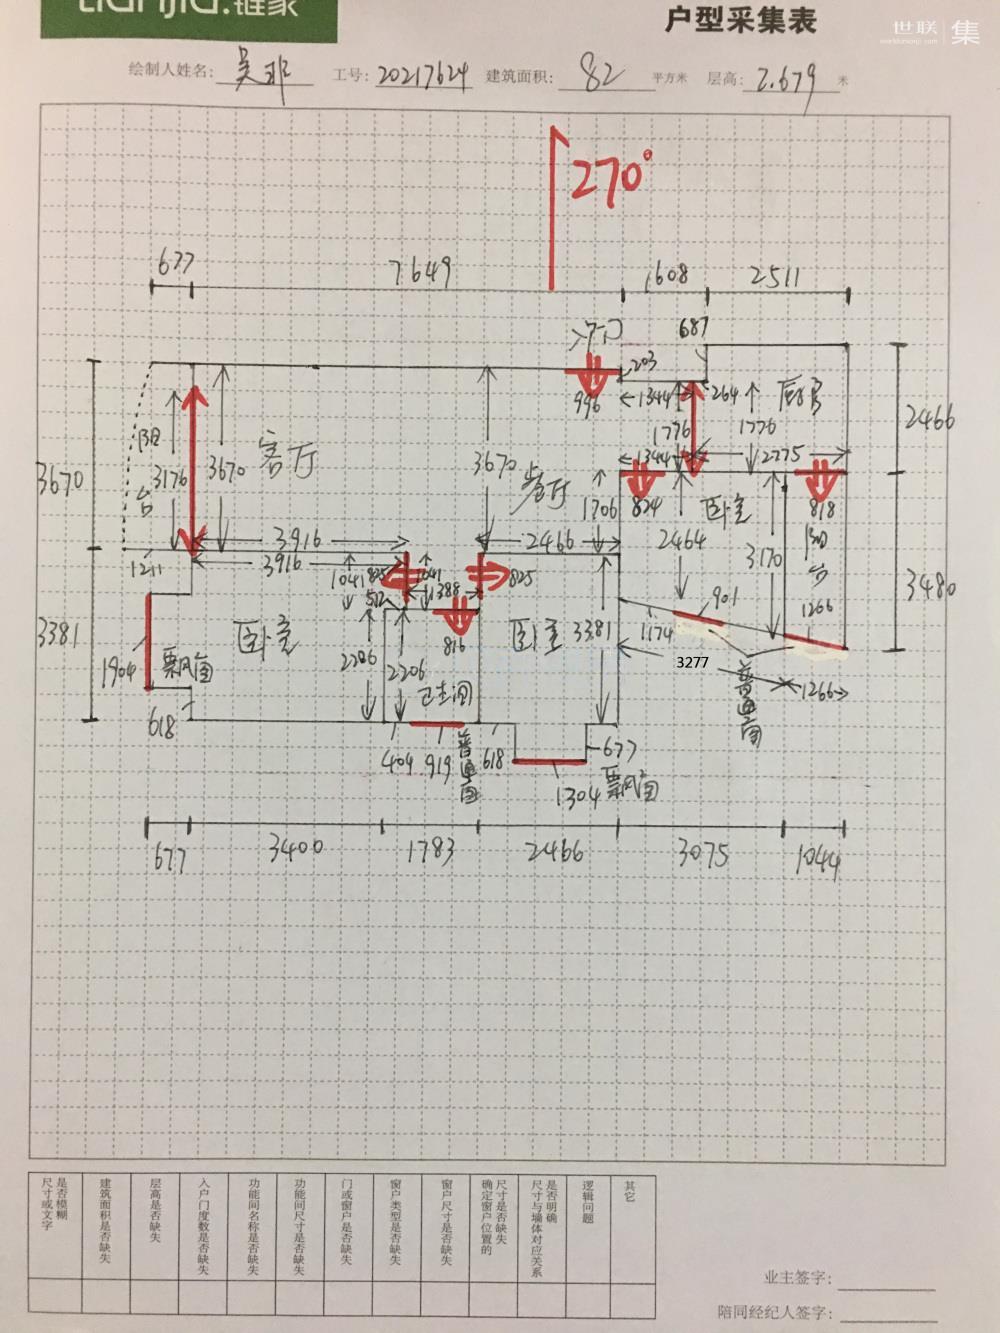 lianjia.链家
户型采集表
世联 集
绘制人姓名: 吴非 工号: 20217624 建筑面积: 82 平方米 层高: 2.679 米
270°
677 7649 1608 2511
入户门 687
203
996 1344 264 厨房
1776 1776
2466
3670 阳台 3176 3670 客厅 3670 餐厅 1344 2775
1706 824 卧室 818
3916 2466 2464 3170 阳台 3480
1211 3916 1041 825 1041 1388 825
512
901
1266
3381 卧室 816 卧室 3381 1174
1904 飘窗 2206 2206 3277
卫生间 1266
普通窗
618
404 919 普通窗 618 677
1304 飘窗
677 3400 1783 2466 3075 1044
是否模糊尺寸或文字
建筑面积是否缺失
层高是否缺失
入户门度数是否缺失
功能间名称是否缺失
功能间尺寸是否缺失
门或窗户是否缺失
窗户类型是否缺失
窗户尺寸是否缺失
尺寸是否缺失确定窗户位置的
是否明确尺寸与墙体对应关系
逻辑问题
其它
业主签字:
陪同经纪人签字: